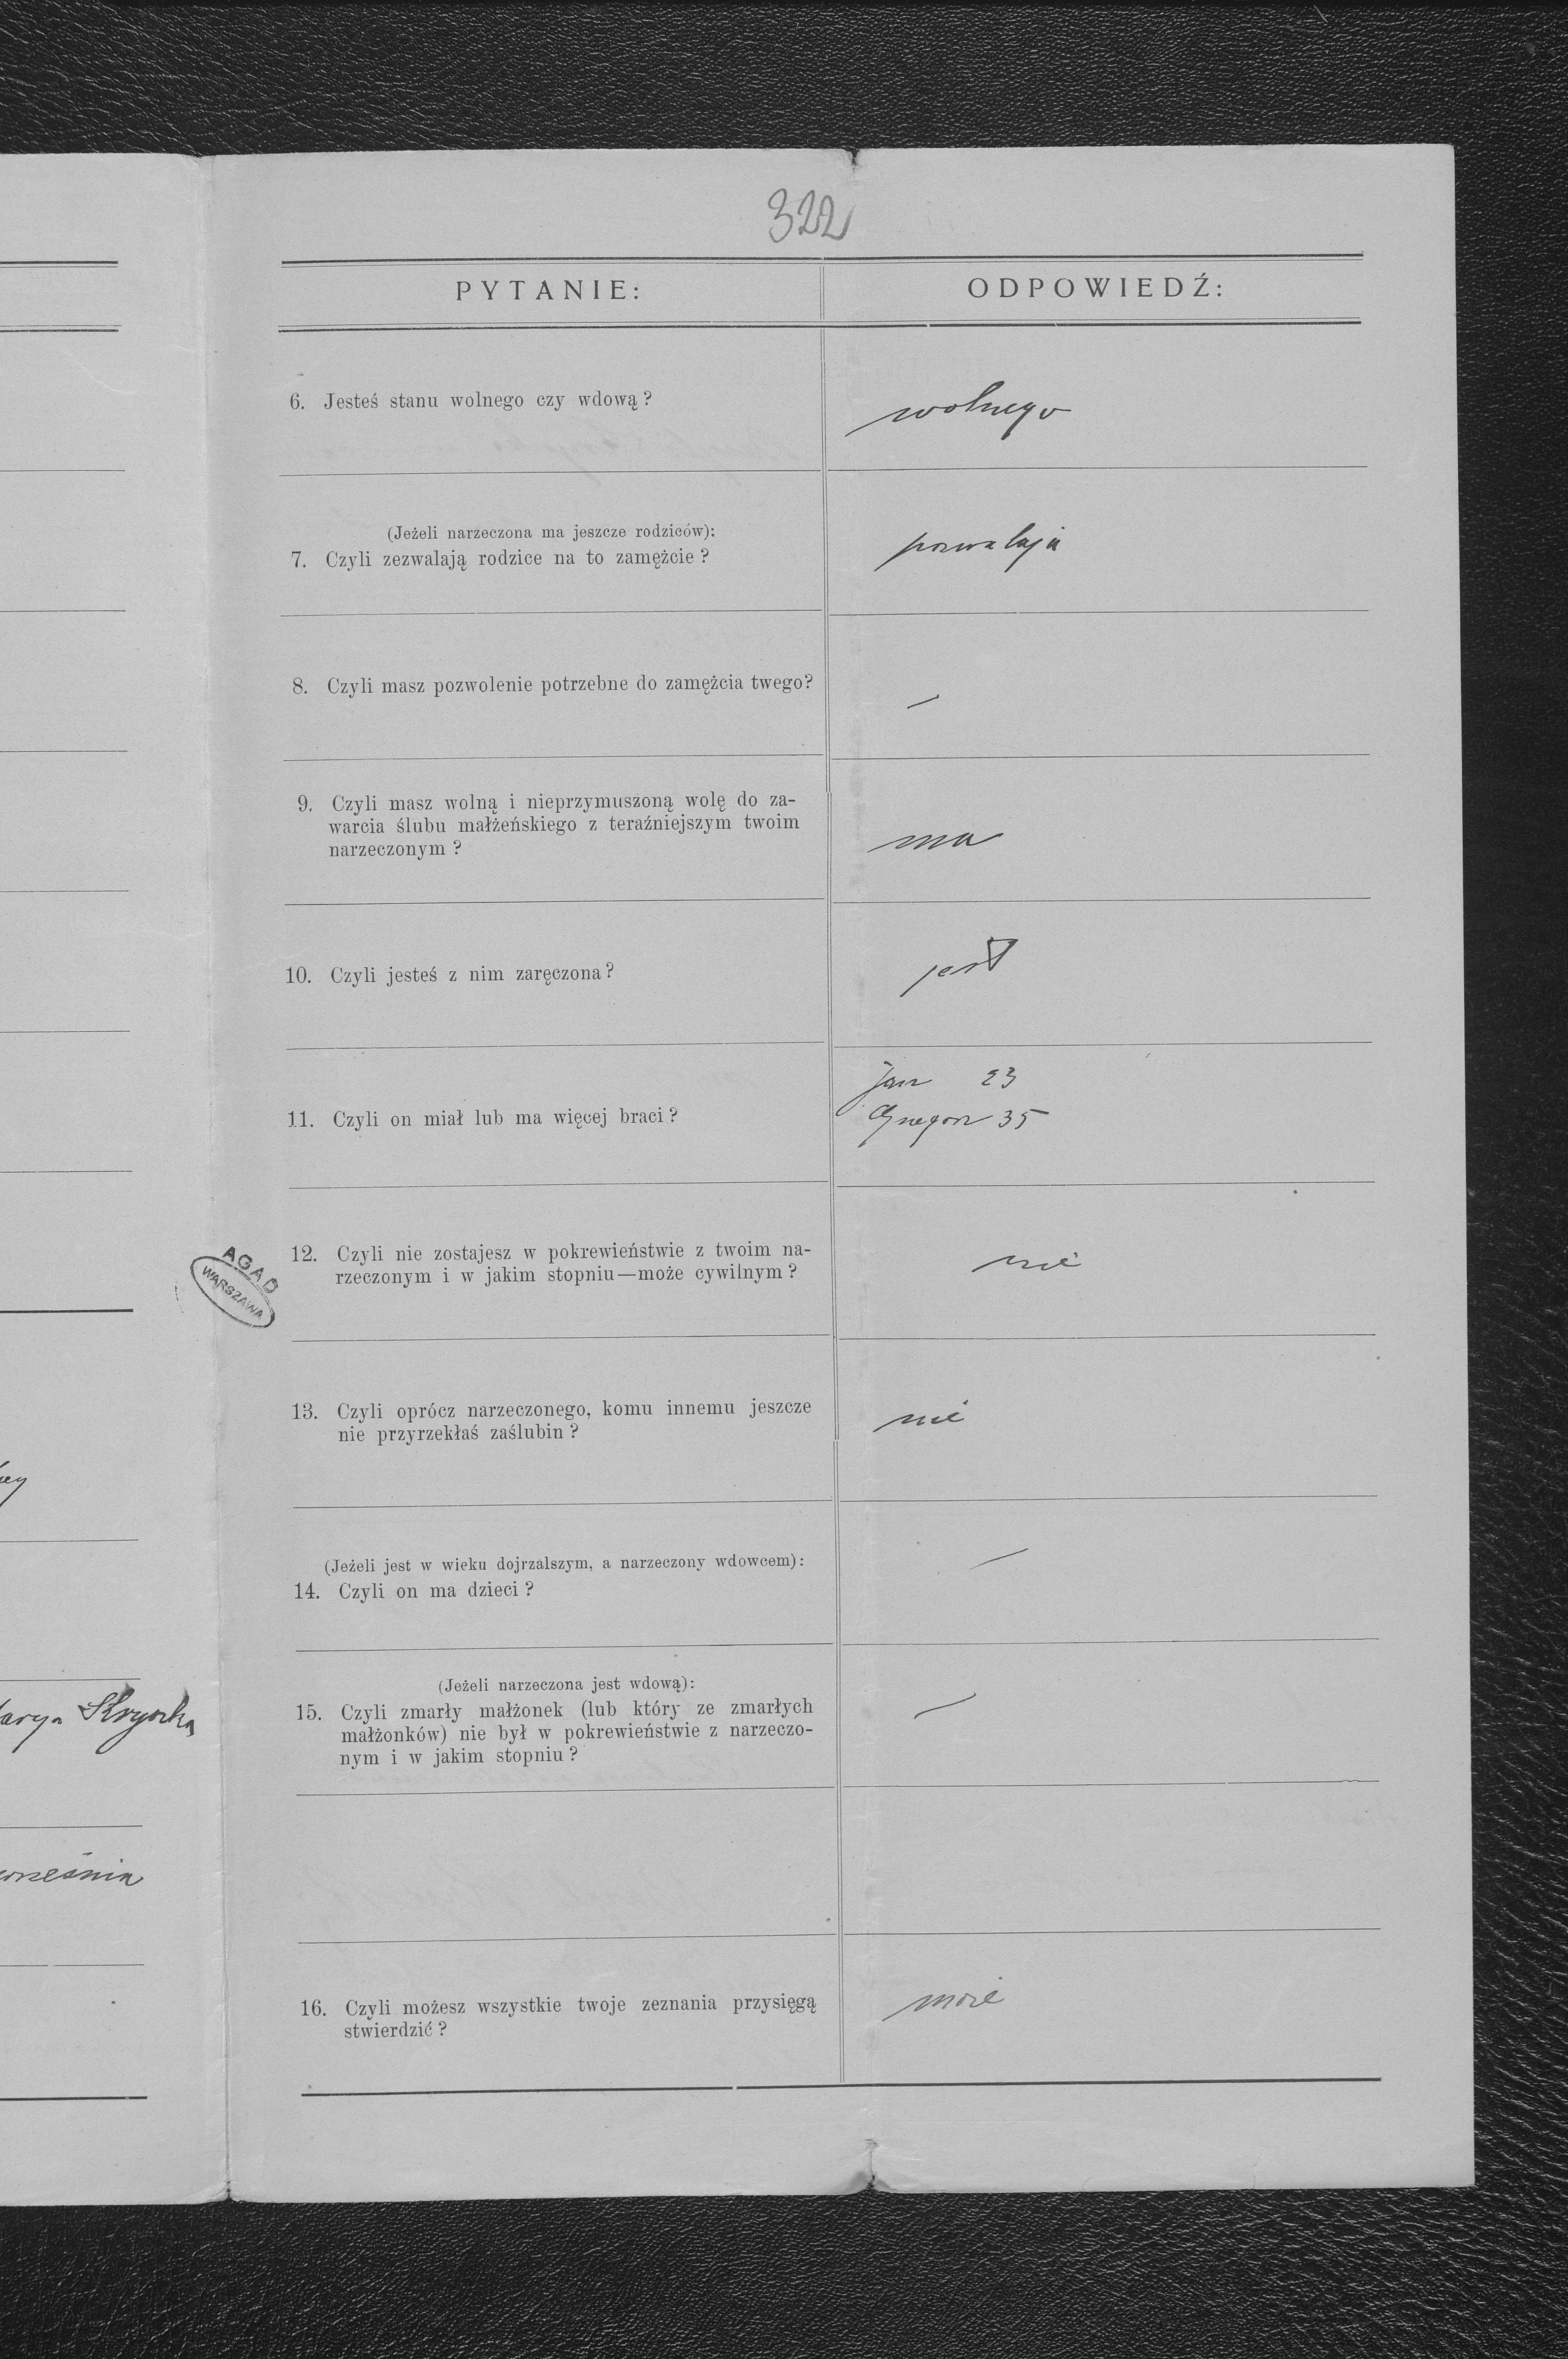 322
PYTANIE:
ODPOWIEDŹ:
6. Jesteś stanu wolnego czy wdową?
wolnego
(Jeżeli narzeczona ma jeszcze rodziców):
7. Czyli zezwalają rodzice na to zamężcie?
pozwalają
8. Czyli masz pozwolenie potrzebne do zamężcia twego?
—
9. Czyli masz wolną i nieprzymuszoną wolę do za-
warcia ślubu małżeńskiego z teraźniejszym twoim
narzeczonym?
ma
10. Czyli jesteś z nim zaręczona?
jest
11. Czyli on miał lub ma więcej braci?
Jan 23
Grzegorz 35
12. Czyli nie zostajesz w pokrewieństwie z twoim na-
rzeczonym i w jakim stopniu—może cywilnym?
nie
13. Czyli oprócz narzeczonego, komu innemu jeszcze
nie przyrzekłaś zaślubin?
nie
(Jeżeli jest w wieku dojrzalszym, a narzeczony wdowcem):
14. Czyli on ma dzieci?
—
(Jeżeli narzeczona jest wdową):
15. Czyli zmarły małżonek (lub który ze zmarłych
małżonków) nie był w pokrewieństwie z narzeczo-
nym i w jakim stopniu?
—
16. Czyli możesz wszystkie twoje zeznania przysięgą
stwierdzić?
może
AGAD
WARSZAWA